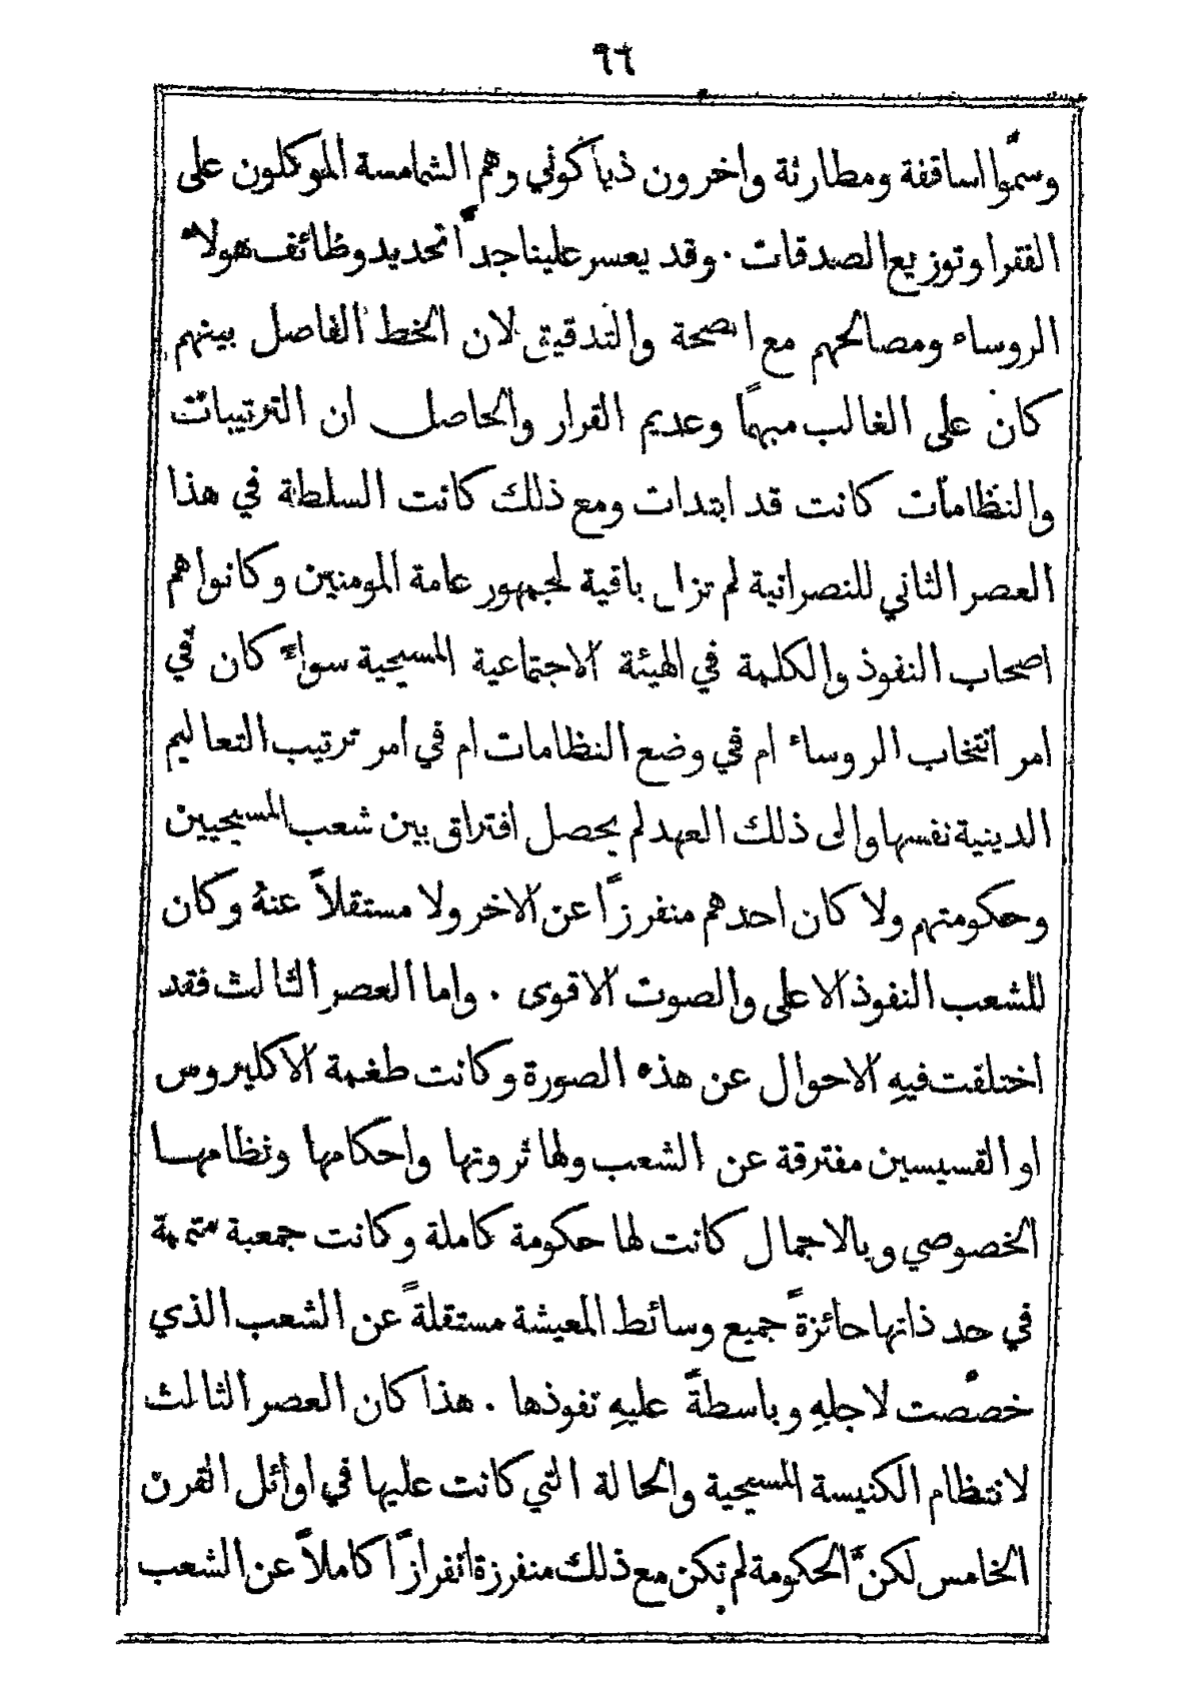 ٩٦
وسمُّوا اساقفة ومطارنة واخرون ذياكوني وهم الشمامسة الموكلون على
الفقرا وتوزيع الصدقات . وقد يعسر علينا جدًّا تحديد وظائف هولاء
الروساء ومصالحهم مع الصحة والتدقيق لان الخط الفاصل بينهم
كان على الغالب مبهمًا وعديم القرار والحاصل ان الترتيبات
والنظامات كانت قد ابتدات ومع ذلك كانت السلطة في هذا
العصر الثاني للنصرانية لم تزل باقية لجمهور عامة المومنين وكانوا هم
اصحاب النفوذ والكلمة في الهيئة الاجتماعية المسيحية سواءً كان في
امر انتخاب الروساء ام في وضع النظامات ام في امر ترتيب التعاليم
الدينية نفسها والى ذلك العهد لم يحصل افتراق بين شعب المسيحيين
وحكومتهم ولا كان احدهم منفرزًا عن الاخر ولا مستقلاً عنهُ وكان
للشعب النفوذ الاعلى والصوت الاقوى . واما العصر الثالث فقد
اختلفت فيهِ الاحوال عن هذه الصورة وكانت طغمة الاكليروس
او القسيسين مفترقة عن الشعب ولها ثروتها واحكامها ونظامها
الخصوصي وبالاجمال كانت لها حكومة كاملة وكانت جمعية متممة
في حد ذاتها حائزةً جميع وسائط المعيشة مستقلةً عن الشعب الذي
خصّصت لاجلهِ وباسطةً عليهِ نفوذها . هذا كان العصر الثالث
لانتظام الكنيسة المسيحية والحالة التي كانت عليها في اوائل القرن
الخامس لكنَّ الحكومة لم تكن مع ذلك منفرزة انفرازًا كاملاً عن الشعب